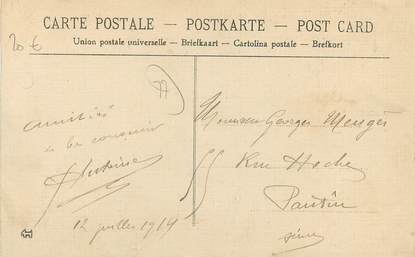 CARTE POSTALE – POSTKARTE – POST CARD
Union postale universelle – Briefkaart – Cartolina postale – Brefkort
20 €
77
Amitiés
et bon souvenir
12 juillet 1914
Monsieur Georges Menger
55 Rue Hoche
Pantin
Seine